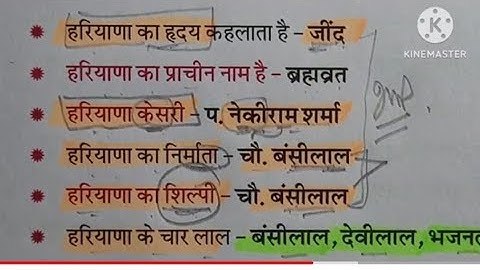 हरियाणा का हृदय कहलाता है – जींद
KINEMASTER
हरियाणा का प्राचीन नाम है – ब्रह्मव्रत
हरियाणा केसरी – प. नेकीराम शर्मा
हरियाणा का निर्माता – चौ. बंसीलाल
हरियाणा का शिल्पी – चौ. बंसीलाल
हरियाणा के चार लाल – बंसीलाल, देवीलाल, भजनल